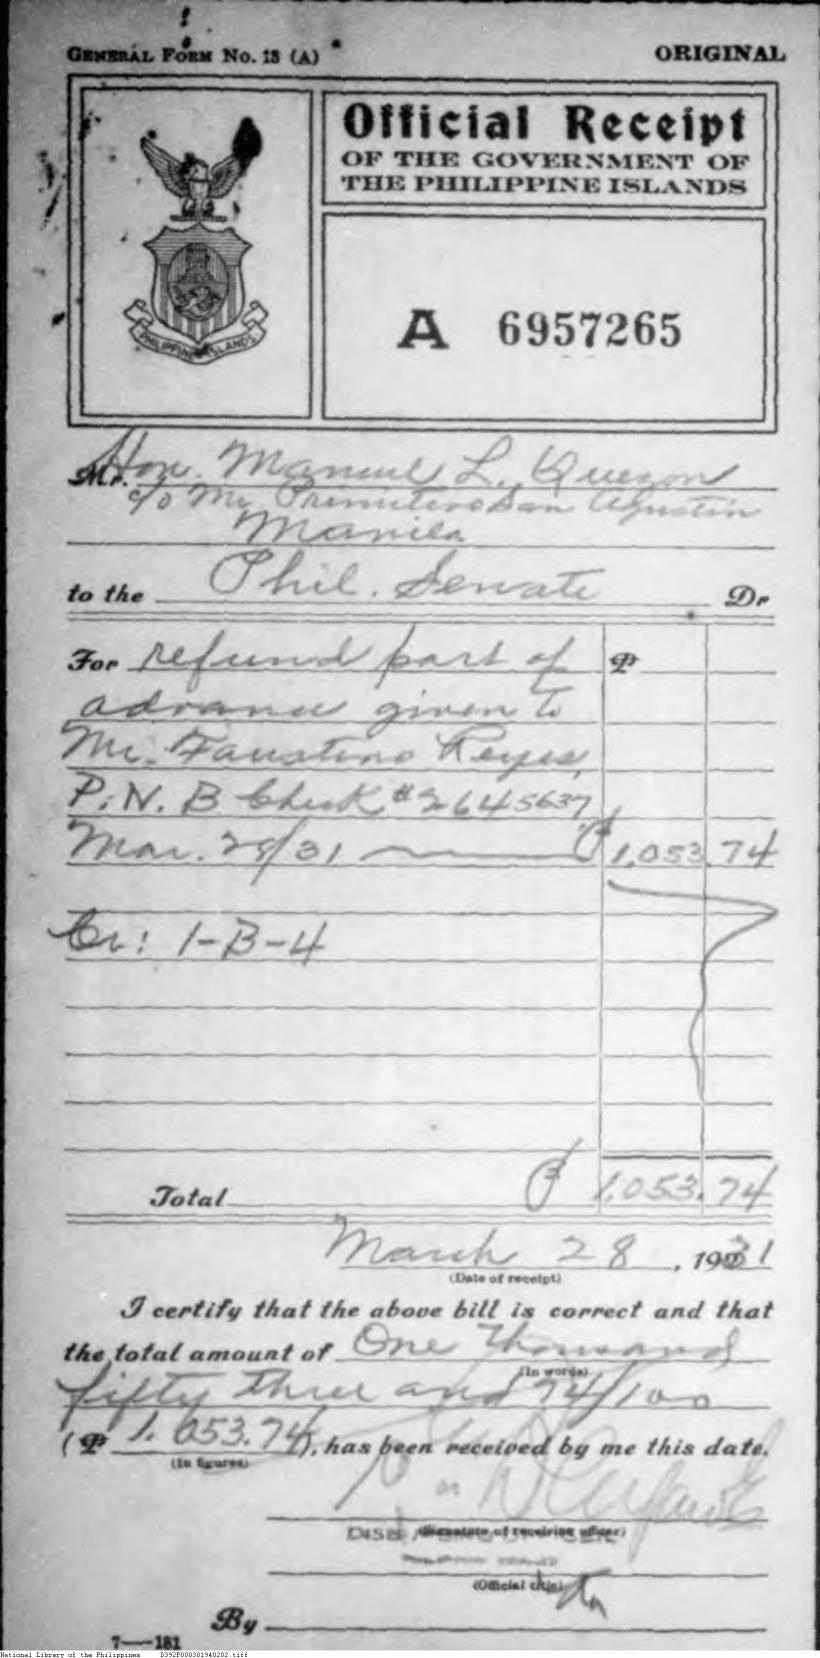 GENERAL FORM NO. 13 (A)
ORIGINAL
Official Receipt
OF THE GOVERNMENT OF
THE PHILIPPINE ISLANDS
PHILIPPINE ISLANDS
A 6957265
Mr. Hon. Manuel L. Quezon
c/o Mr. Primitivo San Agustin
Manila
to the Phil. Senate Dr
For refund part of ₱
advance given to
Mr. Faustino Reyes,
P.N.B Check #2645637
Mar. 28/31 ₱1,053.74
Cr: 1-B-4
Total ₱ 1,053.74
March 28, 1931
(Date of receipt)
I certify that the above bill is correct and that
the total amount of One thousand
(In words)
fifty three and 74/100
(₱ 1,053.74), has been received by me this date.
(In figures)
(Signature of receiving officer)
(Official title)
By
7—181
National Library of the Philippines D392P000301940202.tiff